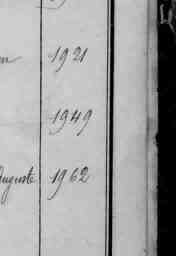 1921
1949
Auguste 1962